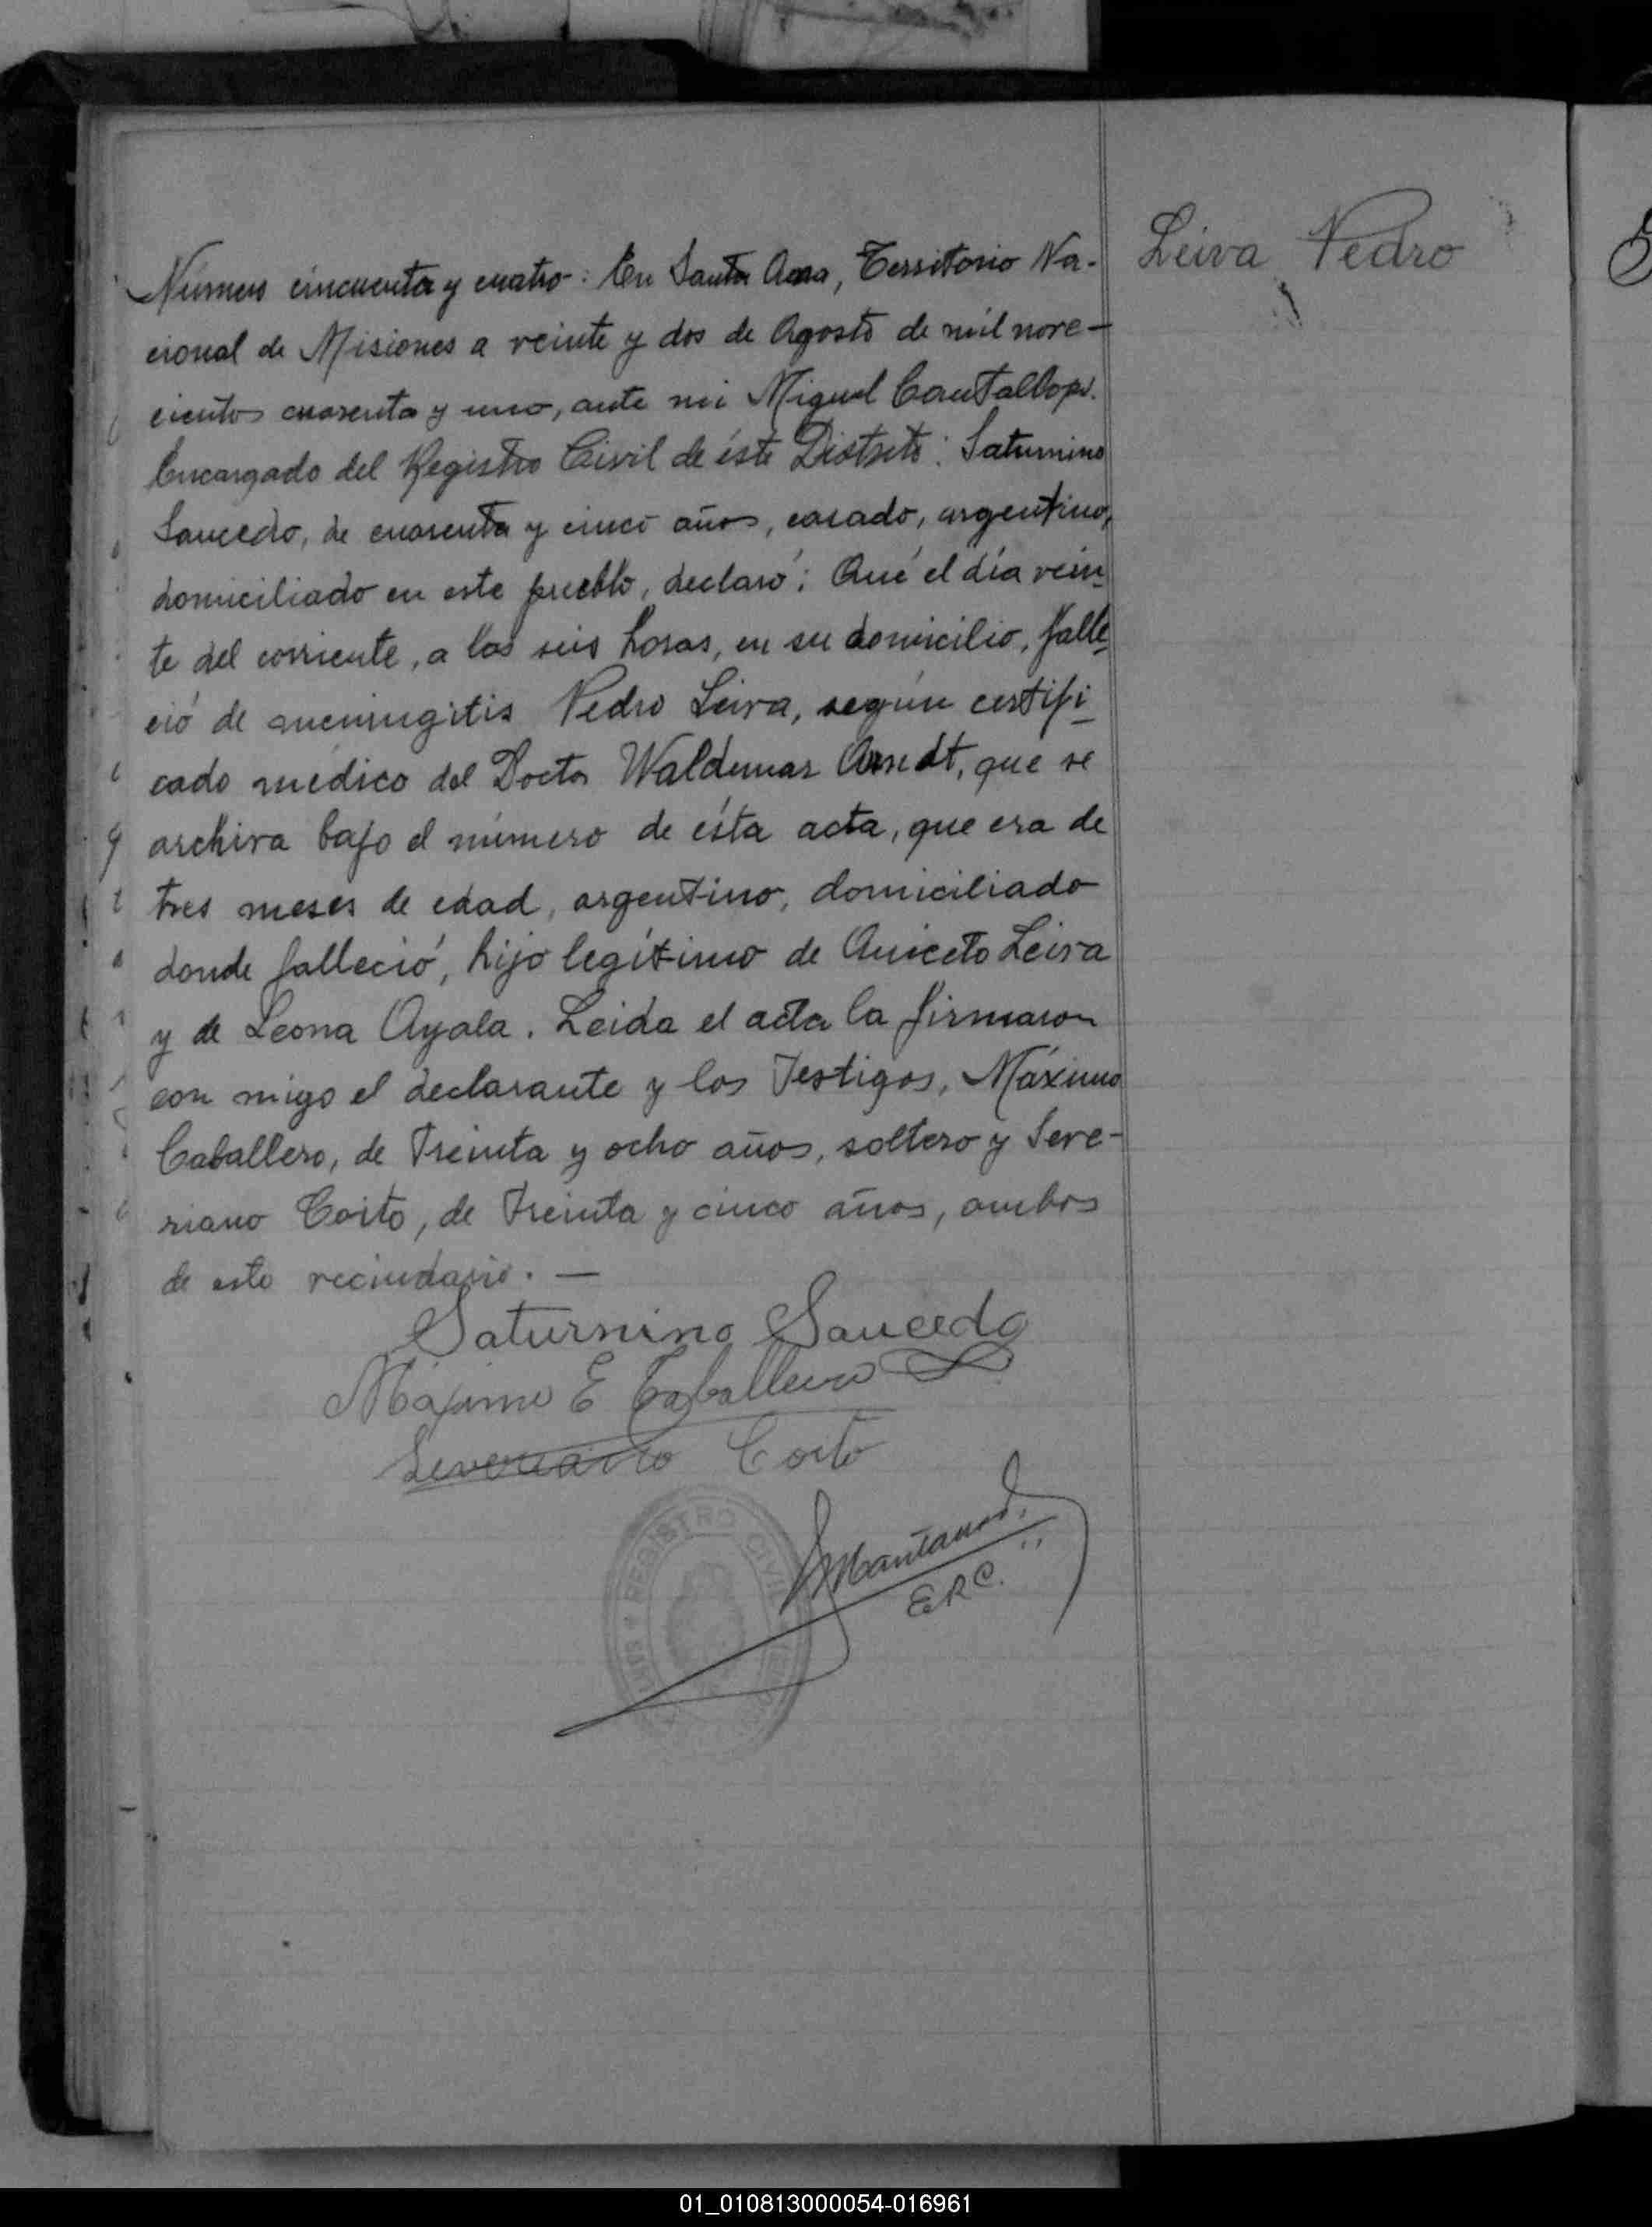 Leiva Pedro
Número cincuenta y cuatro: En Santa Ana, Territorio Na-
cional de Misiones a veinte y dos de Agosto de mil nove-
cientos cuarenta y uno, ante mi Miguel Cantallops.
Encargado del Registro Civil de éste Distrito: Saturnino
Saucedo, de cuarenta y cinco años, casado, argentino,
domiciliado en este pueblo, declaró: Qué el día vein-
te del corriente, a las seis horas, en su domicilio, falle-
ció de meningitis Pedro Leiva, según certifi-
cado médico del Doctor Waldemar Arndt, que se
archiva bajo el número de ésta acta, que era de
tres meses de edad, argentino, domiciliado
donde falleció, hijo legítimo de Aniceto Leiva
y de Leona Ayala. Leida el acta la firmaron
con migo el declarante y los Testigos, Máximo
Caballero, de Treinta y ocho años, soltero y Seve-
riano Coito, de Treinta y cinco años, ambos
de este vecindario. —
Saturnino Saucedo
Máximo E Caballero
Severiano Coito
E.R.C.
REGISTRO CIVIL
01_010813000054-016961